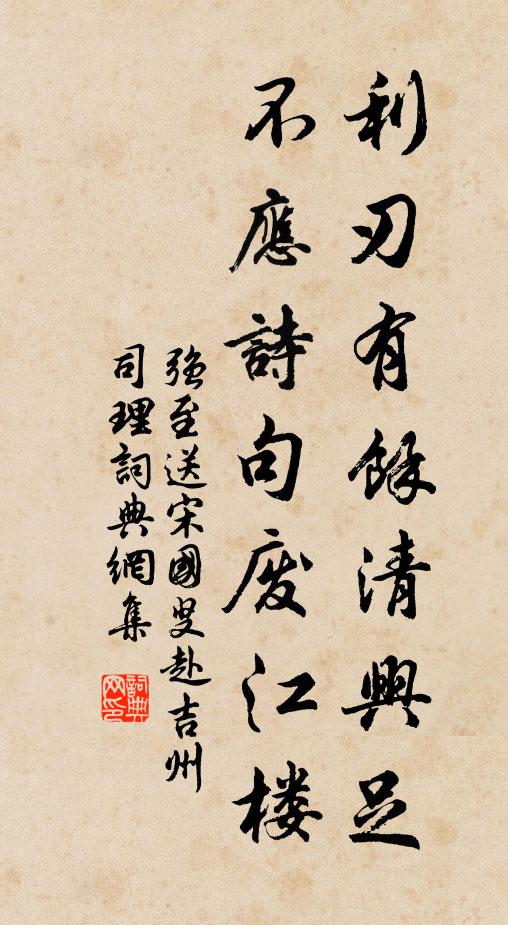 利刃有餘清興足
不應詩句廢江楼
強至送宋國叟赴吉州
司理詞典網集
詞典
网印